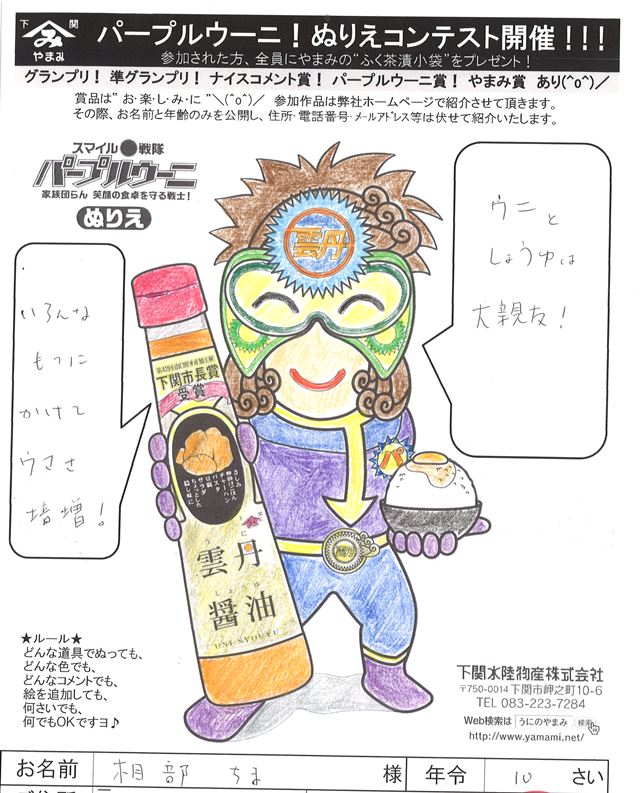 下関
やまみ
パープルウーニ！ぬりえコンテスト開催！！！
参加された方、全員にやまみの“ふく茶漬小袋”をプレゼント！
グランプリ！ 準グランプリ！ ナイスコメント賞！ パープルウーニ賞！ やまみ賞 あり(^o^)／
賞品は“お・楽・し・み・に”＼(^o^)／ 参加作品は弊社ホームページで紹介させて頂きます。
その際、お名前と年齢のみを公開し、住所・電話番号・メールアドレス等は伏せて紹介いたします。
スマイル●戦隊
パープルウーニ
家族団らん 笑顔の食卓を守る戦士！
ぬりえ
雲丹
ウニと
しょうゆは
大親友！
いろんな
ものに
かけて
ウマさ
倍増！
下関市長賞
受賞
さしみ
卵かけごはん
チャーハン
パスタ
豆腐
サラダ
ちょっとした
隠し味に
パ
雲丹
うに
雲丹
しょうゆ
醤油
UNI-SYOUYU
★ルール★
どんな道具でぬっても、
どんな色でも、
どんなコメントでも、
絵を追加しても、
何さいでも、
何でもOKですヨ♪
下関水陸物産株式会社
〒750-0014 下関市岬之町10-6
TEL 083-223-7284
Web検索は うにのやまみ 検索
http://www.yamami.net/
お名前 相部 ちま 様 年令 10 さい